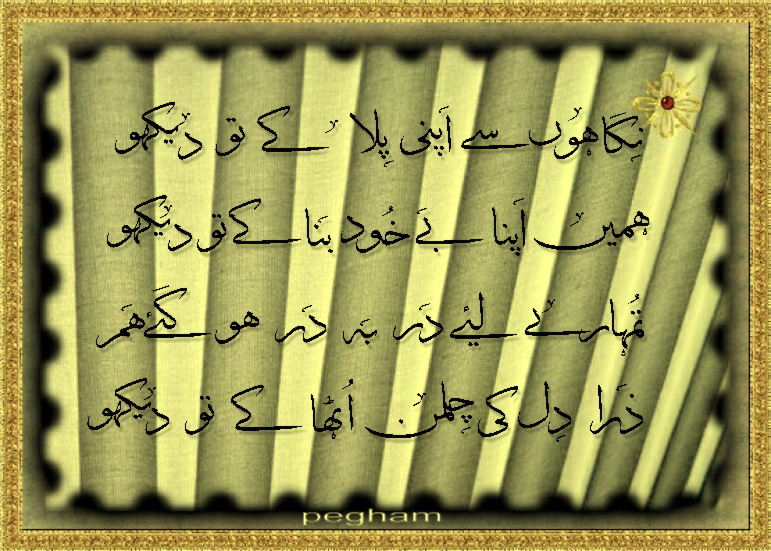 نِگاہوں سے اَپنی پِلا کے تو دیکھو
ہمیں اَپنا بےَ خُود بنَا کے تو دیکھو
تُمہارے لیئے دَر بہَ دَر ہو گئےَ ہَم
ذَرا دِل کی چِلمن اُٹھا کے تو دیکھو
pegham